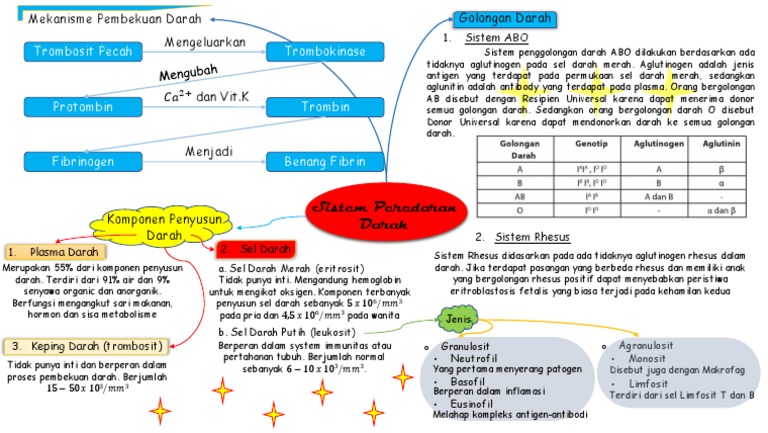 Mekanisme Pembekuan Darah
Trombosit Pecah
Mengeluarkan
Trombokinase
Mengubah
Protombin
Ca²⁺ dan Vit.K
Trombin
Fibrinogen
Menjadi
Benang Fibrin
Golongan Darah
1. Sistem ABO
Sistem penggolongan darah ABO dilakukan berdasarkan ada
tidaknya aglutinogen pada sel darah merah. Aglutinogen adalah jenis
antigen yang terdapat pada permukaan sel darah merah, sedangkan
aglunitin adalah antibody yang terdapat pada plasma. Orang bergolongan
AB disebut dengan Resipien Universal karena dapat menerima donor
semua golongan darah. Sedangkan orang bergolongan darah O disebut
Donor Universal karena dapat mendonorkan darah ke semua golongan
darah.
Golongan Darah Genotip Aglutinogen Aglutinin
A IᴬIᴬ, Iᴼ Iᴼ A β
B Iᴮ Iᴮ, Iᴼ Iᴼ B α
AB Iᴬ Iᴮ A dan B -
O Iᴼ Iᴼ - α dan β
2. Sistem Rhesus
Sistem Rhesus didasarkan pada ada tidaknya aglutinogen rhesus dalam
darah. Jika terdapat pasangan yang berbeda rhesus dan memiliki anak
yang bergolongan rhesus positif dapat menyebabkan peristiwa
eritroblastosis fetalis yang biasa terjadi pada kehamilan kedua
Sistem Peredaran
Darah
Komponen Penyusun
Darah
1. Plasma Darah
Merupakan 55% dari komponen penyusun
darah. Terdiri dari 91% air dan 9%
senyawa organic dan anorganik.
Berfungsi mengangkut sari makanan,
hormon dan sisa metabolisme
2. Sel Darah
a. Sel Darah Merah (eritrosit)
Tidak punya inti. Mengandung hemoglobin
untuk mengikat oksigen. Komponen terbanyak
penyusun sel darah sebanyak 5 x 10⁶/mm³
pada pria dan 4,5 x 10⁶/mm³ pada wanita
b. Sel Darah Putih (leukosit)
Berperan dalam system imunitas atau
pertahanan tubuh. Berjumlah normal
sebanyak 6 – 10 x 10³/mm³.
3. Keping Darah (trombosit)
Tidak punya inti dan berperan dalam
proses pembekuan darah. Berjumlah
15 – 50x 10³/mm³
Jenis
o Granulosit
• Neutrofil
Yang pertama menyerang patogen
• Basofil
Berperan dalam inflamasi
• Eusinofil
Melahap kompleks antigen-antibodi
o Agranulosit
• Monosit
Disebut juga dengan Makrofag
• Limfosit
Terdiri dari sel Limfosit T dan B